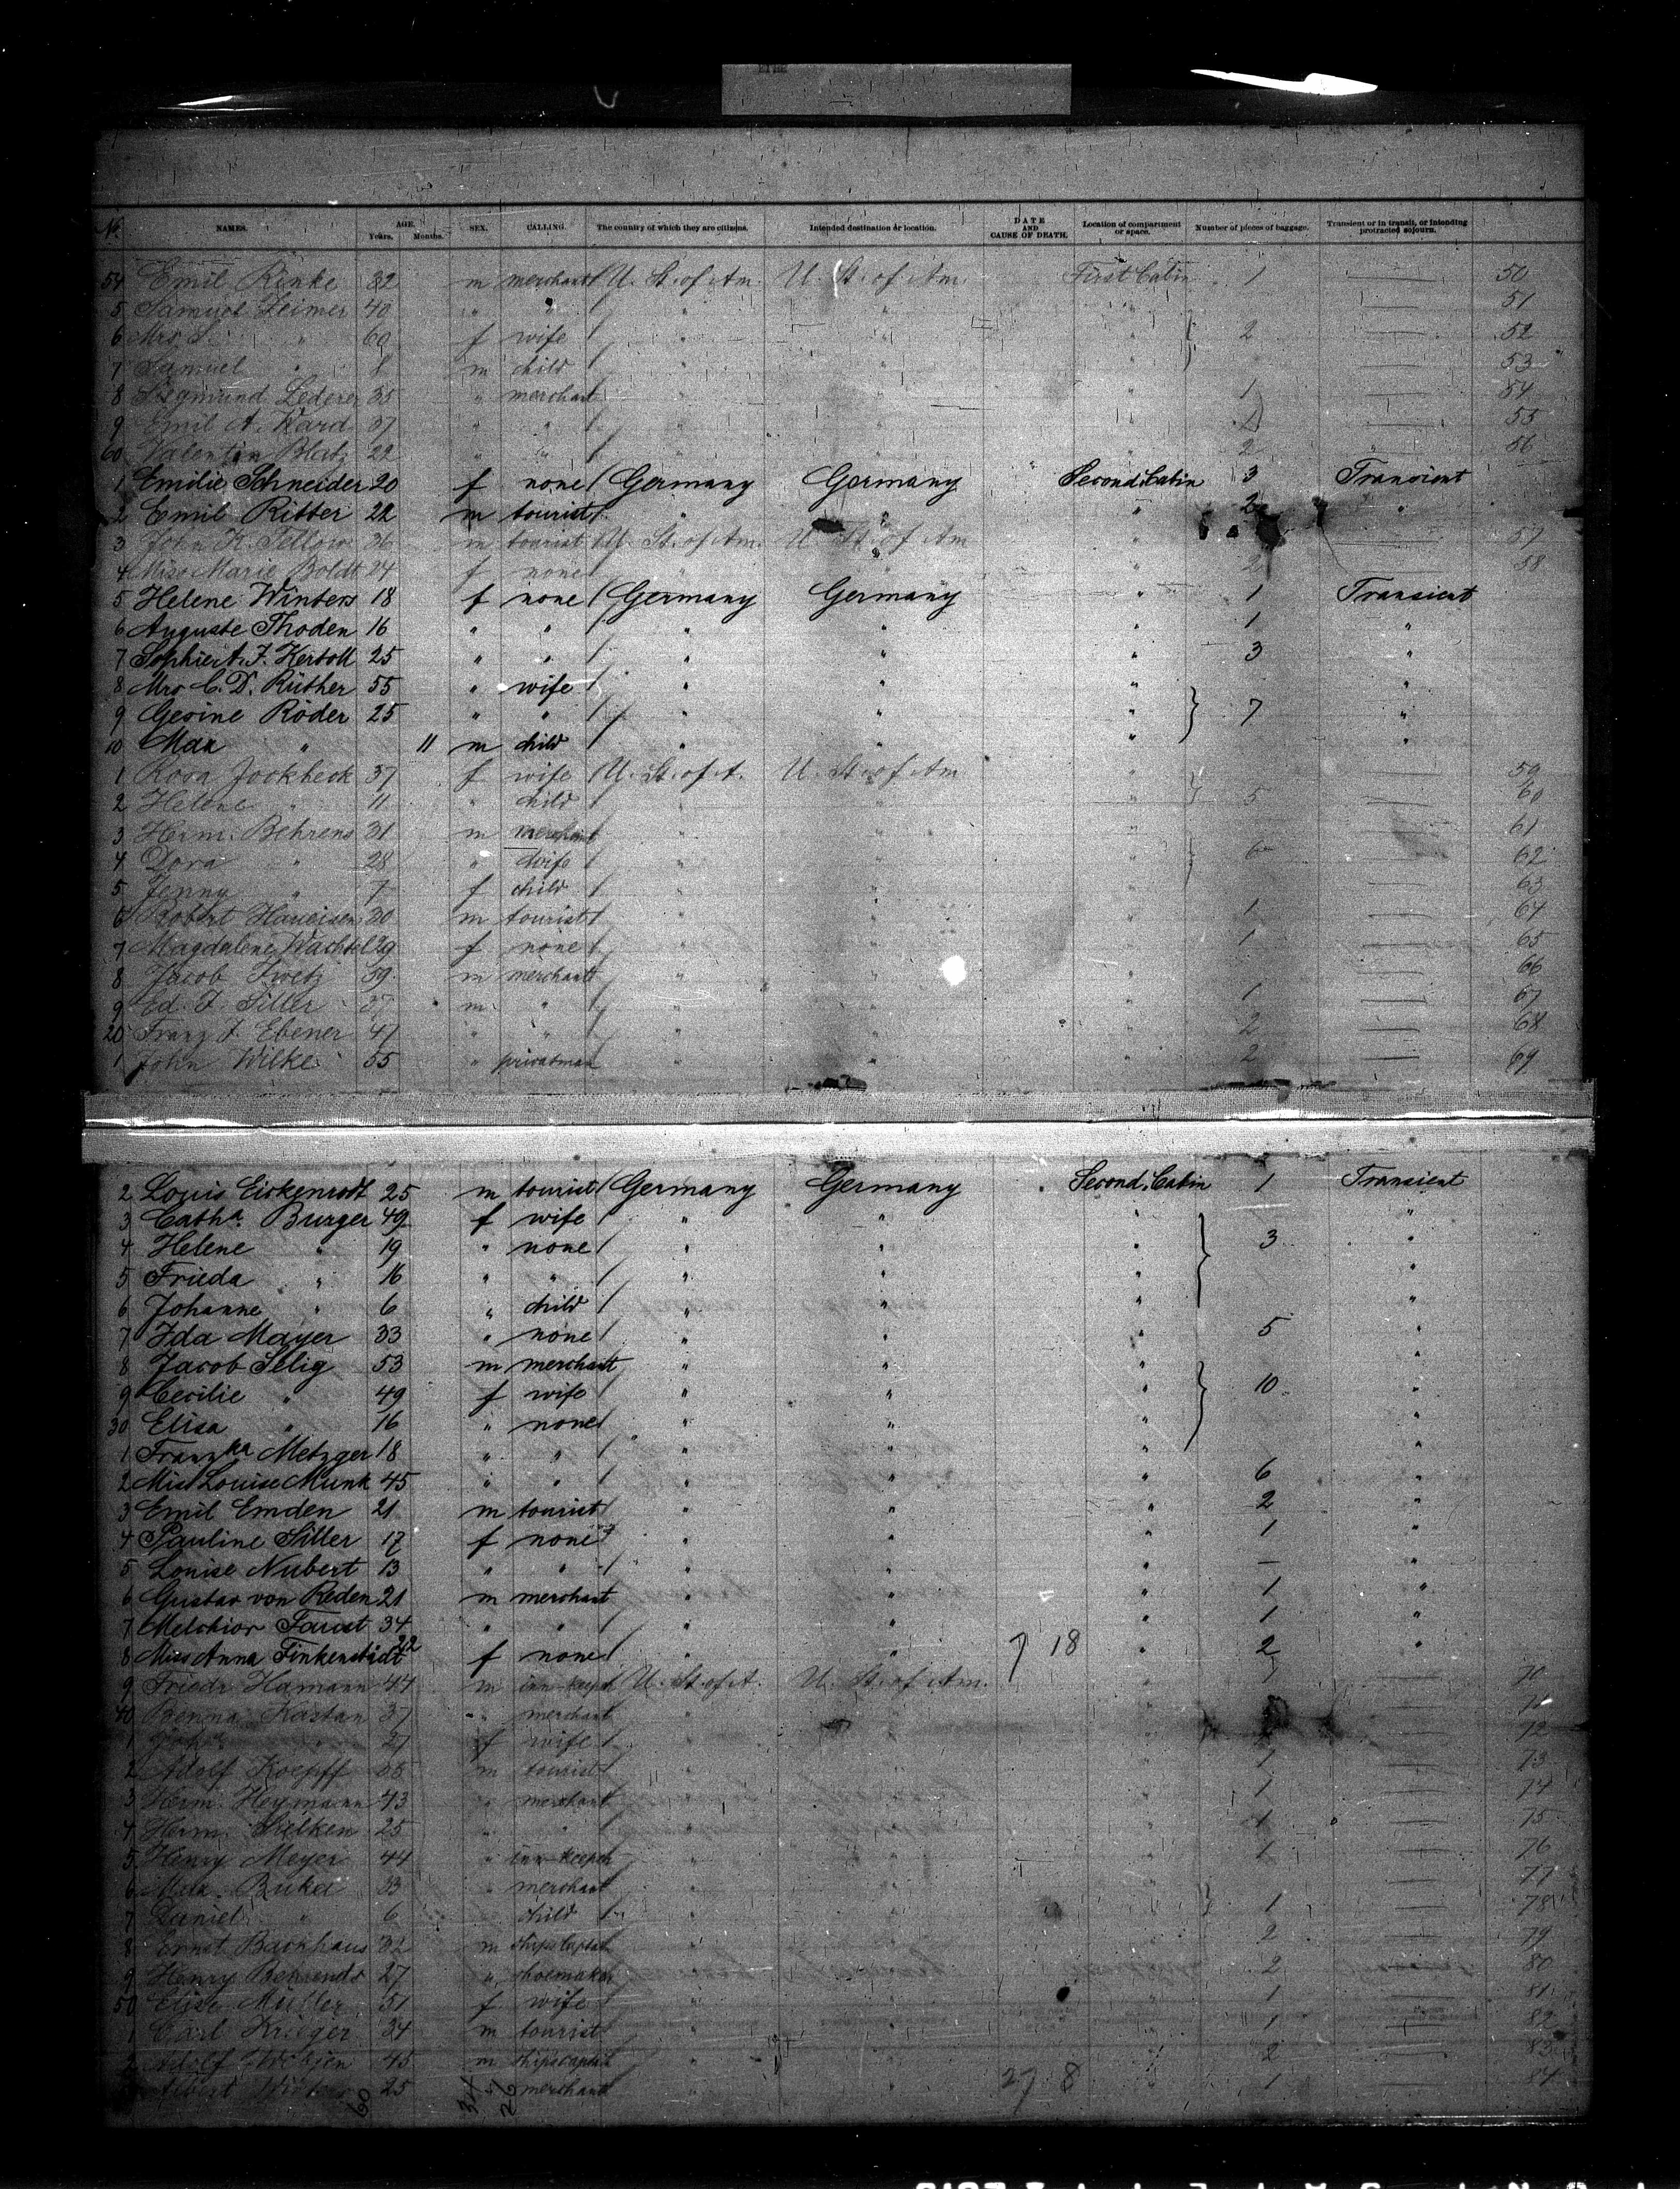 No. NAMES. AGE. Years. Months. SEX. CALLING. The country of which they are citizens. Intended destination or location. DATE AND CAUSE OF DEATH. Location of compartment or space. Number of pieces of baggage. Transient or in transit, or intending protracted sojourn.
54 Emil Rinke 32 m merchant U. St. of Am. U. St. of Am. First Cabin 1 — 50
5 Samuel 40 " " " " " — 51
6 Mrs S. " 60 f wife " " " 2 — 52
7 Samuel " 8 m child " " " — 53
8 Siegmund Lederer 35 " merchant " " " 1 — 54
9 Emil A. Kard 37 " " " " " 1 — 55
60 Valentin Blatz 22 " " " " " 2 — 56
1 Emilie Schneider 20 f none Germany Germany Second Cabin 3 Transient
2 Emil Ritter 22 m tourist " " " 2 "
3 John K. 36 m tourist U. St. of Am. U. St. of Am " — 57
4 Miss Marie Boldt 24 f none " " " 2 — 58
5 Helene Winters 18 f none Germany Germany " 1 Transient
6 Auguste Thoden 16 " " " " " 1 "
7 Sophie A. F. 25 " " " " " 3 "
8 Mrs C. D. Rüther 55 " wife " " " "
9 Gesine Röder 25 " " " " " 7 "
10 Max " 11 m child " " " "
1 Rosa Jockheck 37 f wife U. St. of A. U. St. of Am " — 59
2 Helene " 11 " child " " " 5 — 60
3 Herm. Behrens 31 m merchant " " " — 61
4 Dora " 28 " wife " " " 6 — 62
5 Jenny " 7 f child " " " — 63
6 Robert Haueisen 30 m tourist " " " 1 — 64
7 Magdalene Wachtel 29 f none " " " 1 — 65
8 Jacob 59 m merchant " " " — 66
9 Ed. F. Siller 37 m " " " " 1 — 67
20 Franz J. Ebener 47 " " " " " 2 — 68
1 John Wilke 55 " privatman " " " 2 — 69
2 Louis Eickenrodt 25 m tourist Germany Germany Second Cabin 1 Transient
3 Catha. Burger 49 f wife " " " "
4 Helene " 19 " none " " " 3 "
5 Frieda " 16 " " " " " "
6 Johanne " 6 " child " " " "
7 Ida Mayer 33 " none " " " 5 "
8 Jacob Selig 53 m merchant " " " "
9 Cecilie " 49 f wife " " " 10 "
30 Elisa " 16 " none " " " "
1 Franzka Metzger 18 " " " " " "
2 Miss Louise Munk 45 " " " " " 6 "
3 Emil Emden 21 m tourist " " " 2 "
4 Pauline Siller 17 f none " " " 1 "
5 Louise Nubert 13 " " " " " — "
6 Gustav von Reden 21 m merchant " " " 1 "
7 Melchior Faust 34 " " " " " 1 "
8 Miss Anna Finkenstädt 22 f none " " 7 18 " 2 "
9 Friedr Hamann 44 m inn-keep. U. St. of A. U. St. of Am. " 1 — 70
40 Benno Kastan 37 " merchant " " " — 71
1 " 27 f wife " " " — 72
2 Adolf Koepff 35 m tourist " " " 1 — 73
3 Herm. Heymann 43 " merchant " " " 1 — 74
4 Herm. Sielken 25 " " " " " 1 — 75
5 Henry Meyer 44 " inn-keeper " " " 1 — 76
6 33 " merchant " " " — 77
7 Daniel " 6 child " " " 1 — 78
8 Ernst Backhaus 32 m " " " 2 — 79
9 Henry Behrends 27 " shoemaker " " " 2 — 80
50 Elise Müller 51 f wife " " " 1 — 81
1 Carl Krieger 34 m tourist " " " 1 — 82
2 Adolf 45 m " " " 2 — 83
Albert 25 merchant " 27 8 1 — 84
60 34 26